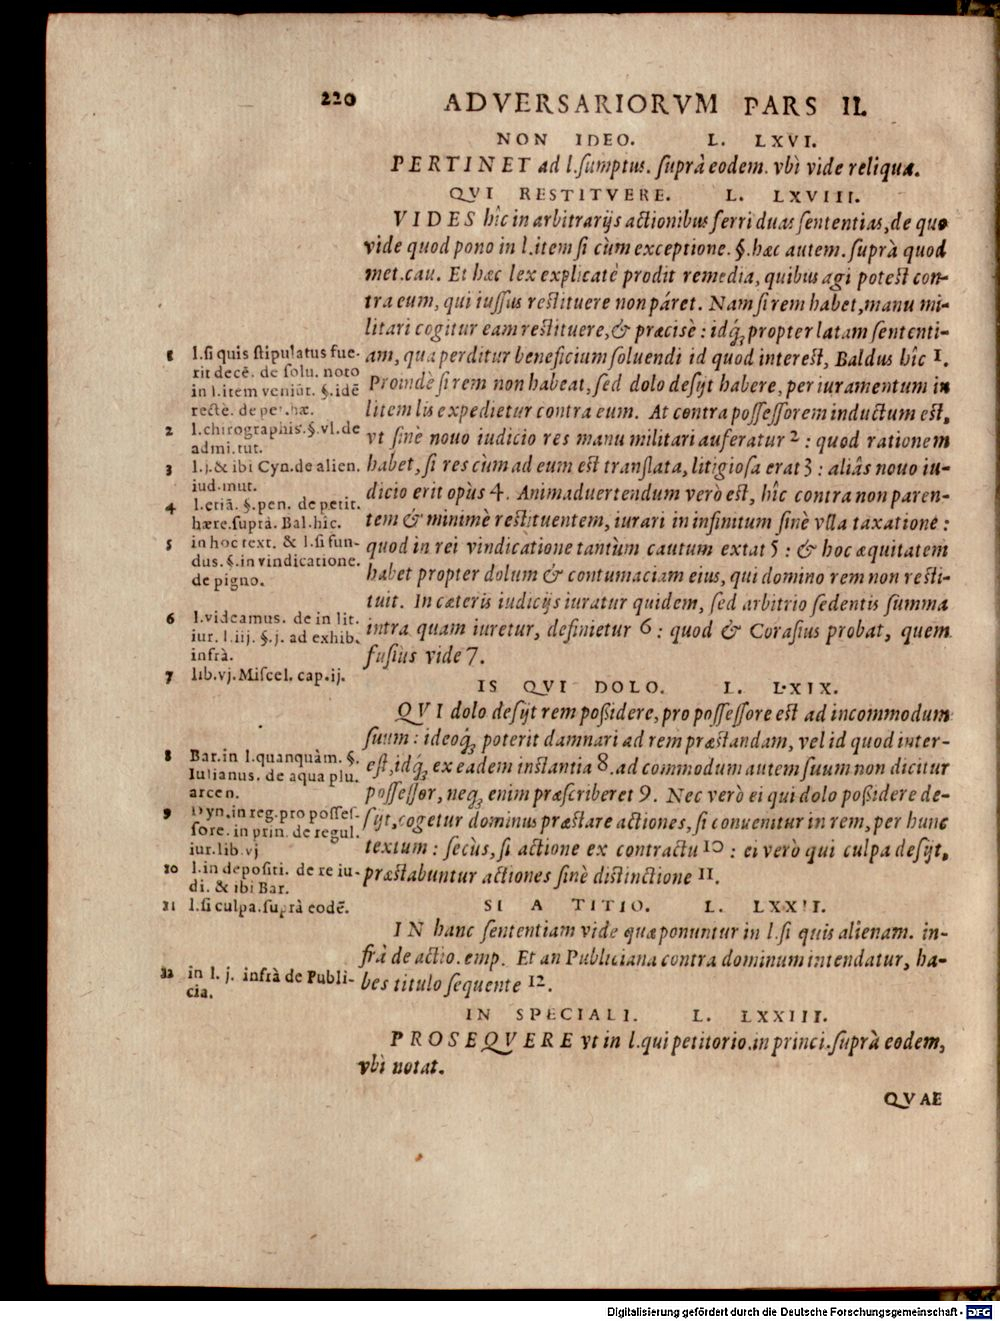 220 ADVERSARIORVM PARS II.
NON IDEO. L. LXVI.
PERTINET ad l.ſumptus. ſuprà eodem. vbì vide reliqua.
QVI RESTITVERE. L. LXVIII.
VIDES hîc in arbitrarijs actionibus ferri duas ſententias, de quo
vide quod pono in l.item ſi cùm exceptione. §.hæc autem. ſuprà quod
met.cau. Et hæc lex explicatè prodit remedia, quibus agi poteſt con-
tra eum, qui iuſſus reſtituere non páret. Nam ſi rem habet, manu mi-
litari cogitur eam reſtituere, & præcisè : idq́; propter latam ſententi-
am, qua perditur beneficium ſoluendi id quod intereſt, Baldus hîc 1.
Proindè ſi rem non habeat, ſed dolo deſijt habere, per iuramentum in
litem lis expedietur contra eum. At contra poſſeſſorem inductum eſt,
vt ſinè nouo iudicio res manu militari auferatur 2 : quod rationem
habet, ſi res cùm ad eum eſt tranſlata, litigioſa erat 3 : aliâs nouo iu-
dicio erit opùs 4. Animaduertendum verò eſt, hîc contra non paren-
tem & minimè reſtituentem, iurari in infinitum ſinè vlla taxatione :
quod in rei vindicatione tantùm cautum extat 5 : & hoc æquitatem
habet propter dolum & contumaciam eius, qui domino rem non reſti-
tuit. In cæteris iudicijs iuratur quidem, ſed arbitrio ſedentis ſumma
intra quam iuretur, definietur 6 : quod & Coraſius probat, quem
fuſiùs vide 7.
IS QVI DOLO. L. LXIX.
QVI dolo deſijt rem poßidere, pro poſſeſſore eſt ad incommodum
ſuum : ideoq́; poterit damnari ad rem præſtandam, vel id quod inter-
eſt, idq́; ex eadem inſtantia 8. ad commodum autem ſuum non dicitur
poſſeſſor, neq; enim præſcriberet 9. Nec verò ei qui dolo poßidere de-
ſijt, cogetur dominus præſtare actiones, ſi conuenitur in rem, per hunc
textum : ſecùs, ſi actione ex contractu 10 : ei verò qui culpa deſijt,
præſtabuntur actiones ſinè diſtinctione 11.
SI A TITIO. L. LXXII.
IN hanc ſententiam vide quæ ponuntur in l.ſi quis alienam. in-
frà de actio. emp. Et an Publiciana contra dominum intendatur, ha-
bes titulo ſequente 12.
IN SPECIALI. L. LXXIII.
PROSEQVERE vt in l.qui petitorio.in princi.ſuprà eodem,
vbì notat.
QVAE
1 l.ſi quis ſtipulatus fue-
rit decē. de ſolu. noto
in l.item veniūt. §.idē
rectè. de pet.hæ.
2 l.chirographis.§.vl.de
admi.tut.
3 l.j.& ibi Cyn.de alien.
iud.mut.
4 l.etiā. §.pen. de petit.
hære.ſuprà. Bal.hîc.
5 in hoc text. & l.ſi fun-
dus. §.in vindicatione.
de pigno.
6 l.videamus. de in lit.
iur. l.iij. §.j. ad exhib.
infrà.
7 lib.vj.Miſcel. cap.ij.
8 Bar.in l.quanquàm. §.
Iulianus. de aqua plu.
arcen.
9 Dyn.in reg.pro poſſeſ-
ſore. in prin. de regul.
iur.lib.vj
10 l.in depoſiti. de re iu-
di. & ibi Bar.
11 l.ſi culpa.ſuprà eodē.
12 in l. j. infrà de Publi-
cia.
Digitalisierung gefördert durch die Deutsche Forschungsgemeinschaft - DFG